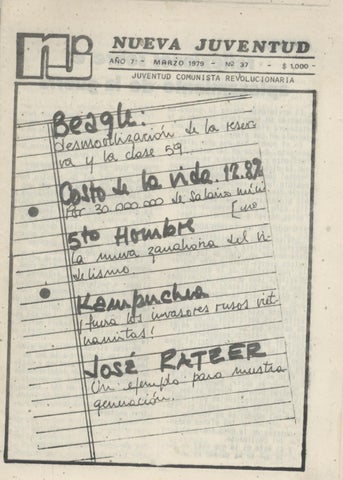 nj
NUEVA JUVENTUD
AÑO 7: - MARZO 1979 - Nº 37 - $ 1.000 -
JUVENTUD COMUNISTA REVOLUCIONARIA
Beagle:
desmovilización de la reser-
va y la clase 59
Costo de la vida. 12.8%
Por 30.000.000 de salario míni
[mo
5to Hombre
La nueva zanahoria del vi-
delismo
Kampuchea
¡fuera los invasores rusos viet-
namitas!
José RATZER
Un ejemplo para nuestra
generación.